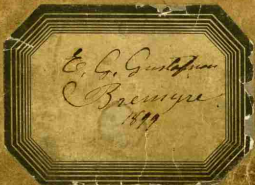 E. G. Gustafson
Bremyre.
1899